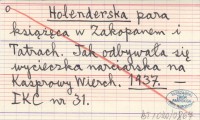 Holenderska para
książęca w Zakopanem i
Tatrach. Jak odbywała się
wycieczka narciarska na
Kasprowy Wierch. 1937. –
IKC nr 31.